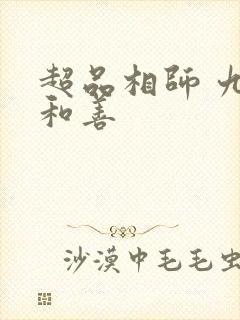 超品相師 九
和善
沙漠中毛毛虫